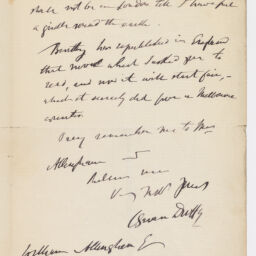 shall not be in London till I have put
a girdle round the earth.
Bentley has republished in England
that novel which I asked you to
read, and now it will start fair,—
which it scarcely did from a Melbourne
counter.
Pray remember me to Mrs
Allingham &
Believe me
Very truly yours
C Gavan Duffy
William Allingham Esq